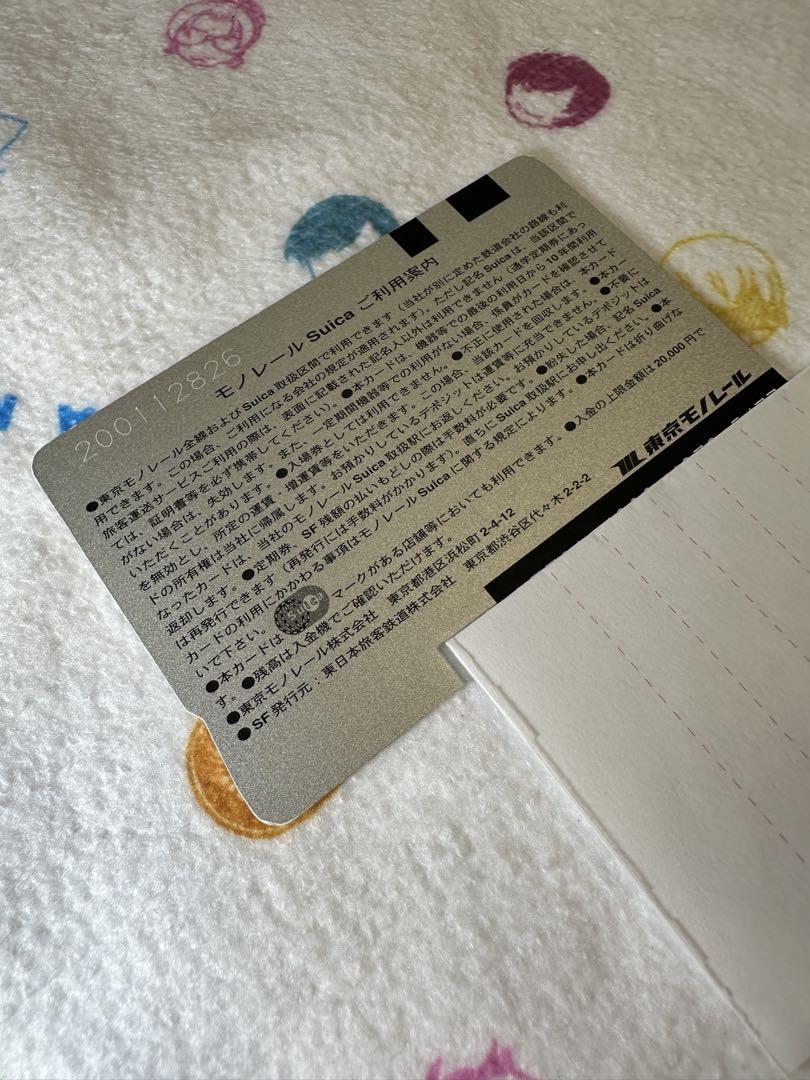 200112826
モノレール Suica ご利用案内
●東京モノレール全線およびSuica取扱区間で利用できます（当社が別に定めた鉄道会社の路線も利
用できます。この場合、ご利用になる会社の規定が適用されます）。ただし記名Suicaは、当該区間で
旅客運送サービスご利用の際は、表面に記載された記名人以外は利用できません（通学定期券にあっ
ては、証明書等を必ず携帯してください）。●本カードは、機器等での最後の利用日から10年間利用
がない場合は、失効します。また、一定期間機器等での利用がない場合、係員がカードを確認させて
いただくことがあります。●入場券としては利用できません。●不正に使用された場合は、本カード
を無効とし、所定の運賃、増運賃等をいただきます。この場合、当該カードを回収します。●本カー
ドの所有権は当社に帰属します。お預かりしているデポジットは運賃等に充当できません。●不要に
なったカードは、当社のモノレールSuica取扱駅にお返しください。お預かりしているデポジットは
返却します。●定期券、SF残額の払いもどしの際は手数料が必要です。●紛失した場合、記名Suica
は再発行できます（再発行には手数料がかかります）。直ちにSuica取扱駅にお申し出ください。●本
カードの利用にかかわる事項はモノレールSuicaに関する規定によります。●本カードは折り曲げな
いで下さい。
●本カードは Suica マークがある店舗等においても利用できます。●入金の上限金額は20,000円で
す。●残高は入金機でご確認いただけます。
●東京モノレール株式会社　東京都港区浜松町2-4-12
●SF発行元：東日本旅客鉄道株式会社　東京都渋谷区代々木2-2-2
東京モノレール